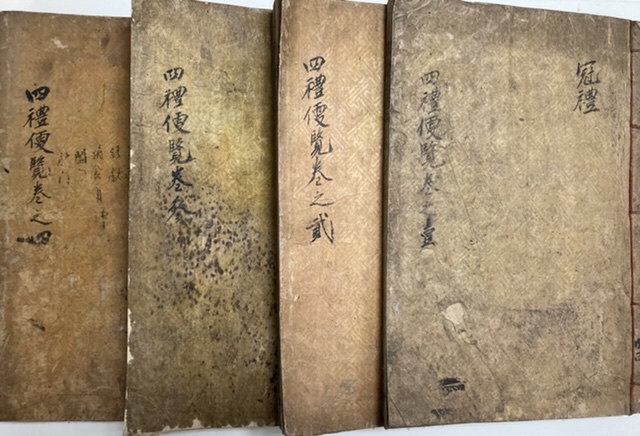 冠禮
四禮便覽卷之壹
四禮便覽卷之貳
四禮便覽卷叁
四禮便覽卷之四